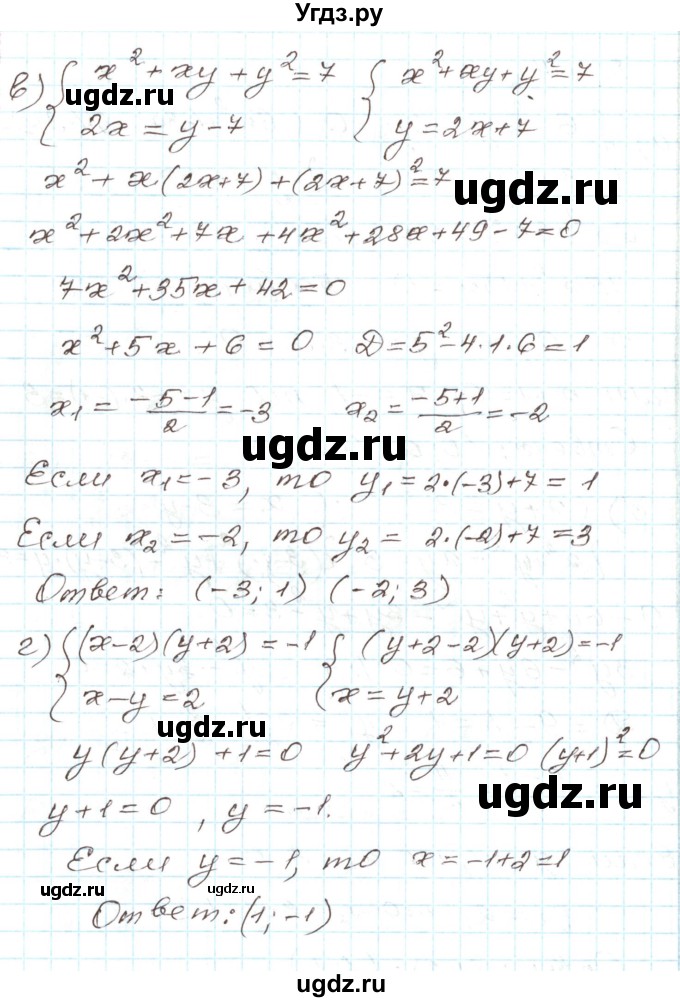 Угдз.ру
в) { x² + xy + y² = 7 { x² + xy + y² = 7
ugdz.ru
2x = y - 7 y = 2x + 7
x² + x(2x+7) + (2x+7)² = 7
ugdz.ru
x² + 2x² + 7x + 4x² + 28x + 49 - 7 = 0
7x² + 35x + 42 = 0
x² + 5x + 6 = 0 D = 5² - 4·1·6 = 1
x₁ = (-5-1)/2 = -3 x₂ = (-5+1)/2 = -2
ugdz.ru
Если x₁ = -3, то y₁ = 2·(-3)+7 = 1
Если x₂ = -2, то y₂ = 2·(-2)+7 = 3
Ответ: (-3; 1) (-2; 3)
г) { (x-2)(y+2) = -1 { (y+2-2)(y+2) = -1
x - y = 2 x = y + 2
ugdz.ru
y(y+2) + 1 = 0 y² + 2y + 1 = 0 (y+1)² = 0
ugdz.ru
y + 1 = 0, y = -1.
Если y = -1, то x = -1+2 = 1
ugdz.ru
Ответ: (1; -1)
ugdz.ru